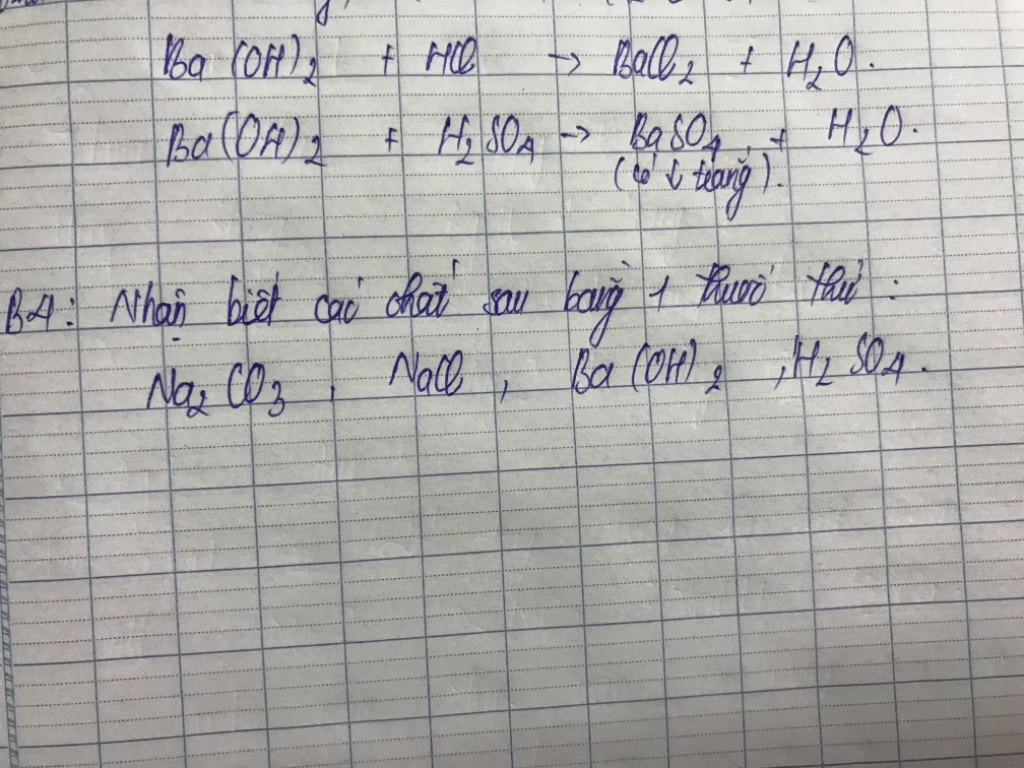 Ba(OH)2 + HCl → BaCl2 + H2O.
Ba(OH)2 + H2SO4 → BaSO4 + H2O.
(có ↓ trắng).
B4: Nhận biết các chất sau bằng 1 thuốc thử :
Na2CO3 , NaCl , Ba(OH)2 , H2SO4.